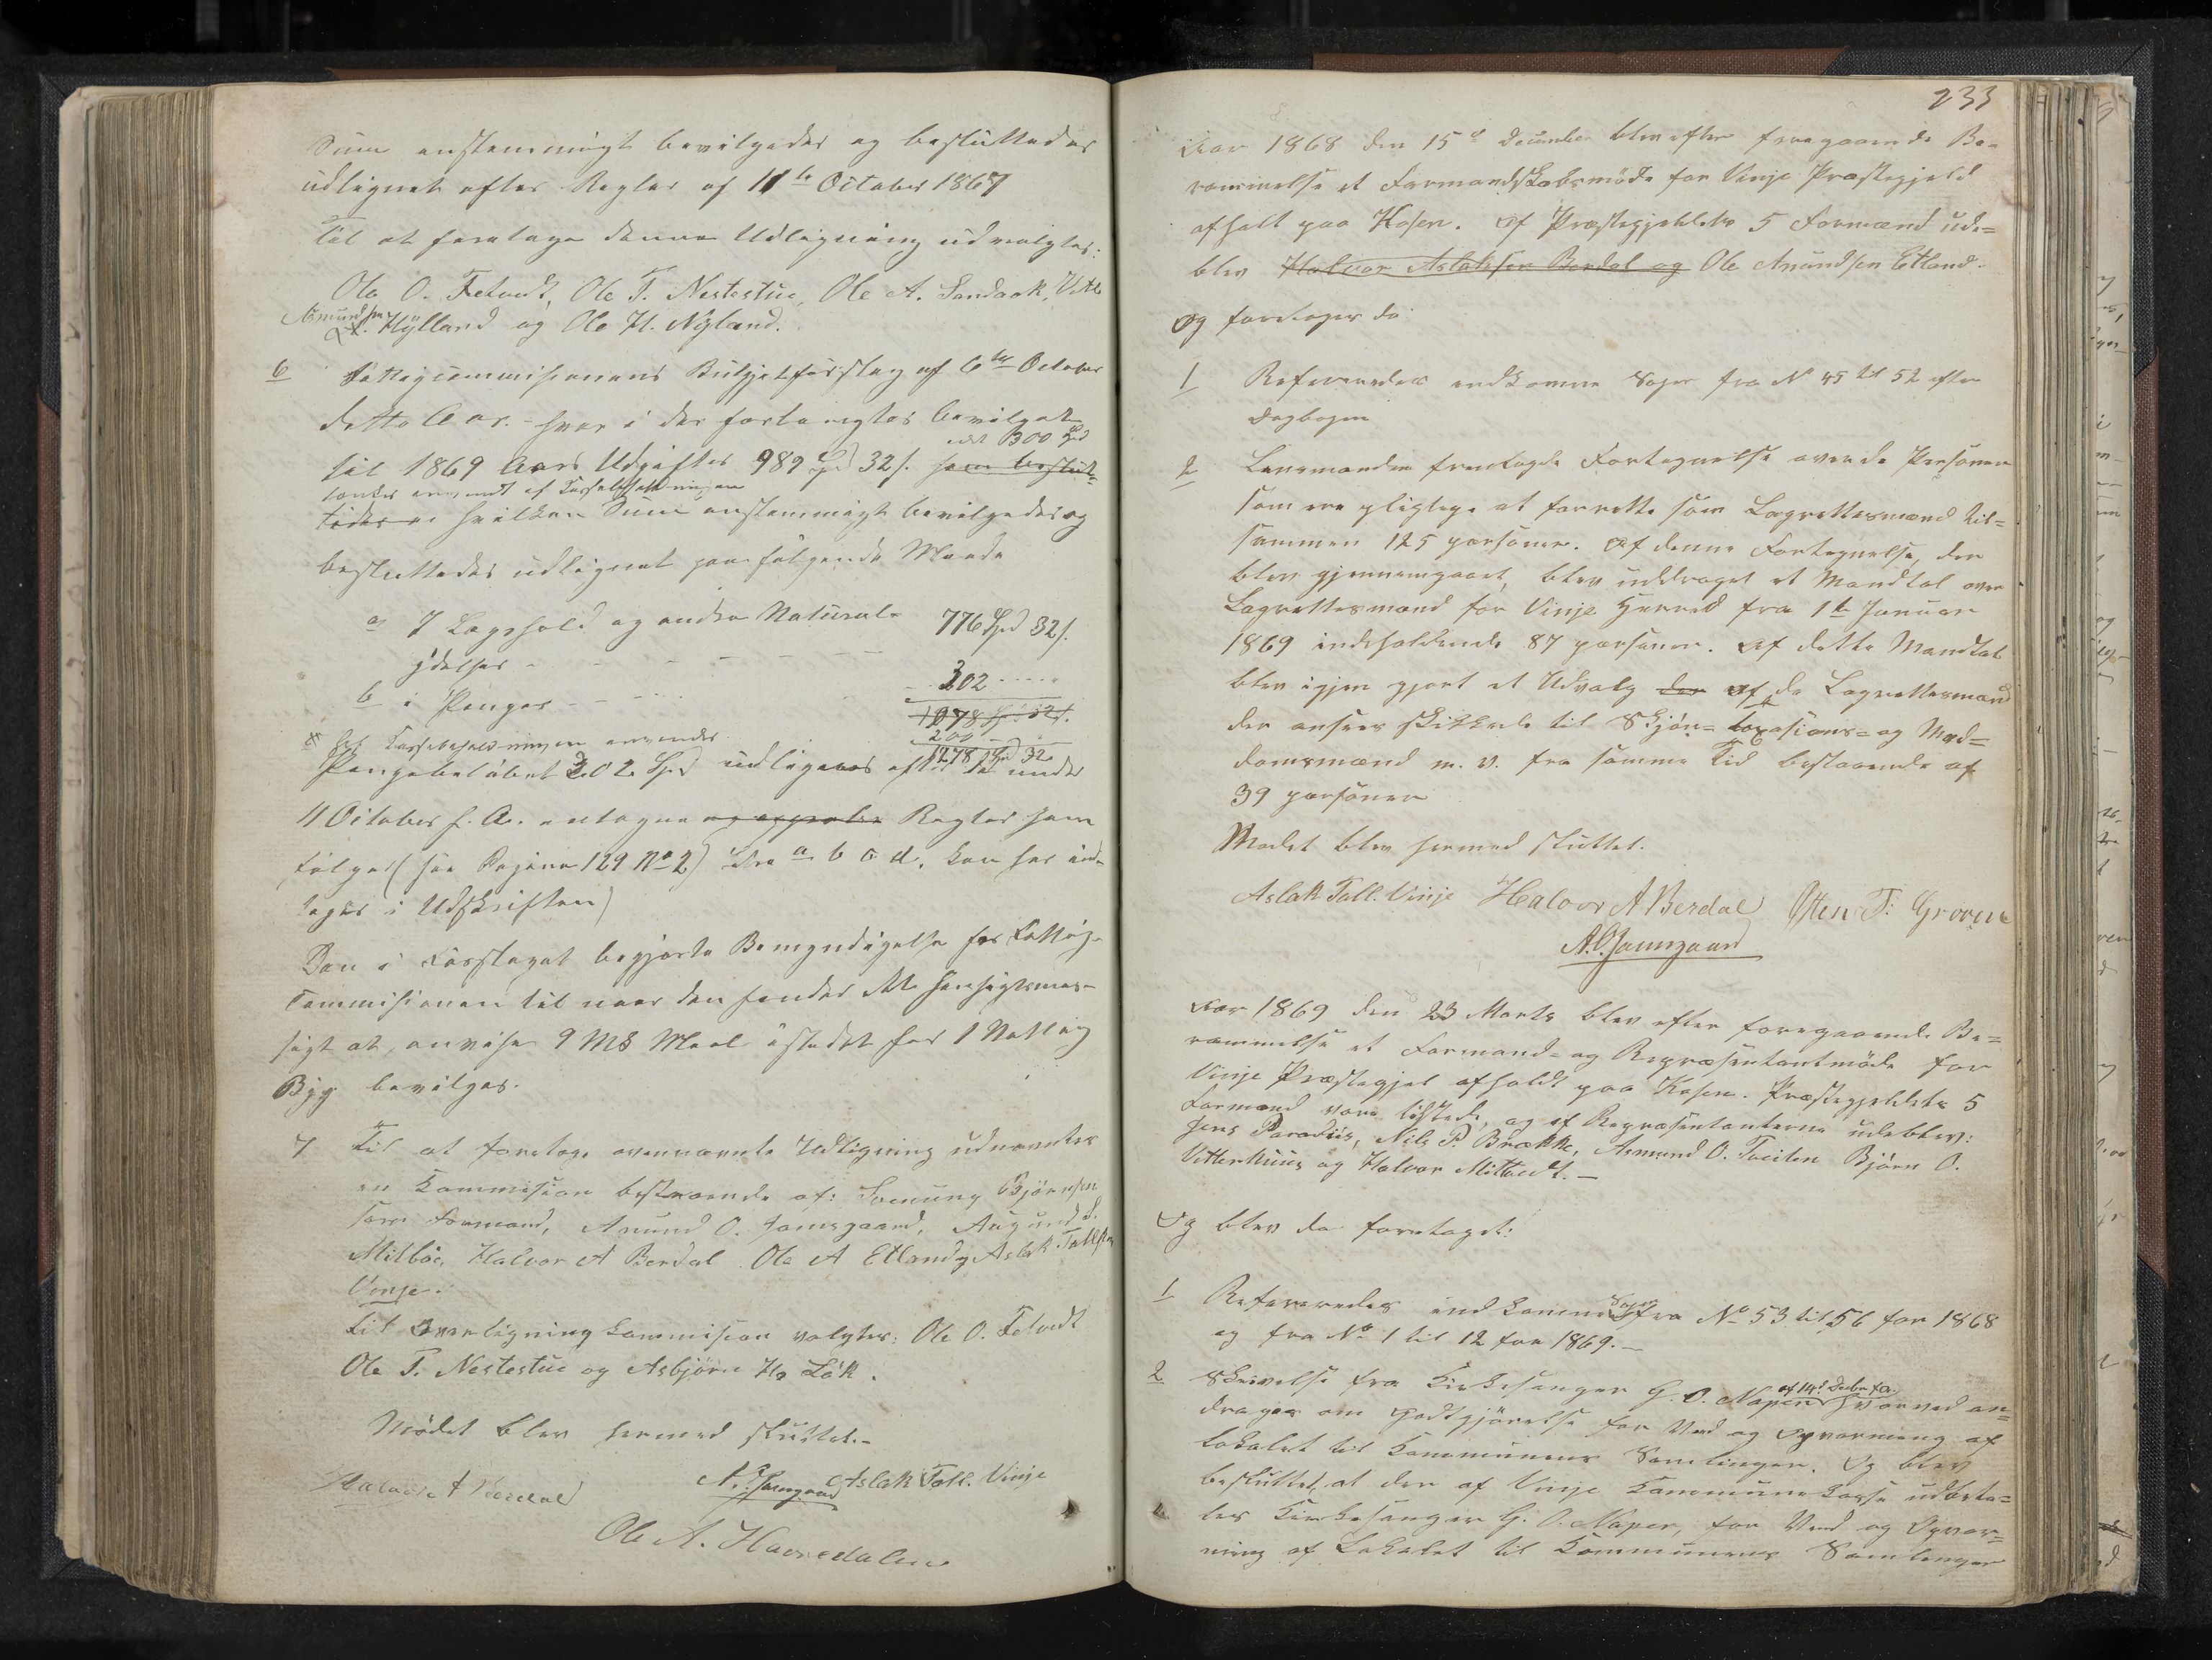 Sum enstemmigt bevilgedes og besluttedes
udlignet efter Regler af 11te October 1867
Til at foretage denne Udligning udvalgtes:
Ole O. Fetvedt, Ole T. Nestestue, Ole A. Sandaak,
Asmundsen
Hylland og Ole H. Nyland.
6 Fattigcommisionens Budgjetforslag af 6te October
dette Aar. - hvor i der forlangtes bevilget
300 Spd
til 1869 Aars Udgifter 989 Spd 32 s. som beslut-
anvendt af Cassabeholdningen
tedes hvilken Sum enstemmigt bevilgedes og
besluttedes udlignet paa følgende Maade
a, I Lægshold og anden Natural- 776 Spd 32 s.
ydelser - - - - - -
b i Penge - - - 302 - - - -
1078 Sp 32 s.
200
af Cassebeholdningen anvendes 1278 Spd 32
Pengebeløbet 302 Spd udlignes efter de under
11 October f. A. antagne og approb Regler som
følger (see Pagina 129 No 2) Litr a b c d. kan her ind-
tages i Udskriften)
Den i Forslaget begjærte Bemyndigelse for Fattig-
Commisionen til naar den finder det hensigtsmæs-
sigt at anvise 9 Mk Meel istedet for 1 Notting
Byg bevilges.
7 Til at foretage ovennævnte Udligning udnævntes
en Kommision bestaaende af: Sveinung Bjørnsen
som Formand, Anund O. Jamsgaard, Augund S.
Mitbøe, Halvor A Berdal Ole A Etland og Aslak Tallsen
Vinje.
til Overligningskommision valgtes: Ole O. Fetvedt
Ole T. Nestestue og Asbjørn H. Løk.
Mødet blev hermed sluttet.-
Halvor A Berdal A. O. Jamsgaard Aslak Tall. Vinje
Ole A. Haavedalen
233
Aar 1868 den 15d December blev efter foregaaende Be-
rammelse et Formandskabsmøde for Vinje Præstegjeld
afholt paa Kosen. Af Præstegjeldets 5 Formænd ude=
blev Halvor Aslaksen Berdal og Ole Anundsen Etland.
Og foretoges da
1 Refereredes indkomne Sager fra No 45 til 52 efter
Dagbogen
2 Lensmanden fremlagde Fortegnelse over de Personer
som ere pligtige at forrette som Lagrettesmænd til=
sammen 125 personer. Af denne Fortegnelse, der
blev gjennemgaaet, blev uddraget et Mandtal over
Lagrettesmænd for Vinje Herred fra 1te Januar
1869 indeholdende 87 personer. Af dette Mandtal
blev igjen gjort et Udvalg der af de Lagrettesmænd
der ansees skikkede til Skjøn= Taxasions= og Med=
domsmænd m. v. fra samme Tid bestaaende af
39 personer
Mødet blev hermed sluttet.
Aslak Tall. Vinje Halvor A Berdal Sten T. Groven
A. O. Jamsgaard
Aar 1869 den 23 Marts blev efter foregaaende Be=
rammelse et Formand= og Repræsentantmøde for
Vinje Præstegjel afholdt paa Kosen. Præstegjeldets 5
Formænd vare tilstede, og af Repræsentanterne udeblev:
Jens Paradiis, Nils P. Brække, Asmund O. Tveiten Bjørn O.
Vitterhuus og Halvor Mitbøe. -
Og blev da foretaget:
1 Refereredes indkomne Sager fra No 53 til 56 for 1868
og fra No 1 til 12 for 1869. -
af 14d Decbr f. A.
2 Skrivelse fra Kirkesanger G. O. Naper hvorved an=
drages om Godtgjørelse for Ved og Opvarming af
Lokalet til Kommunens Samlinger. Og blev
besluttet, at der af Vinje Kommunekasse udbeta=
les Kirkesanger G. O. Naper, for Ved og Opvar=
ming af Lokalet til Kommunens Samlinger